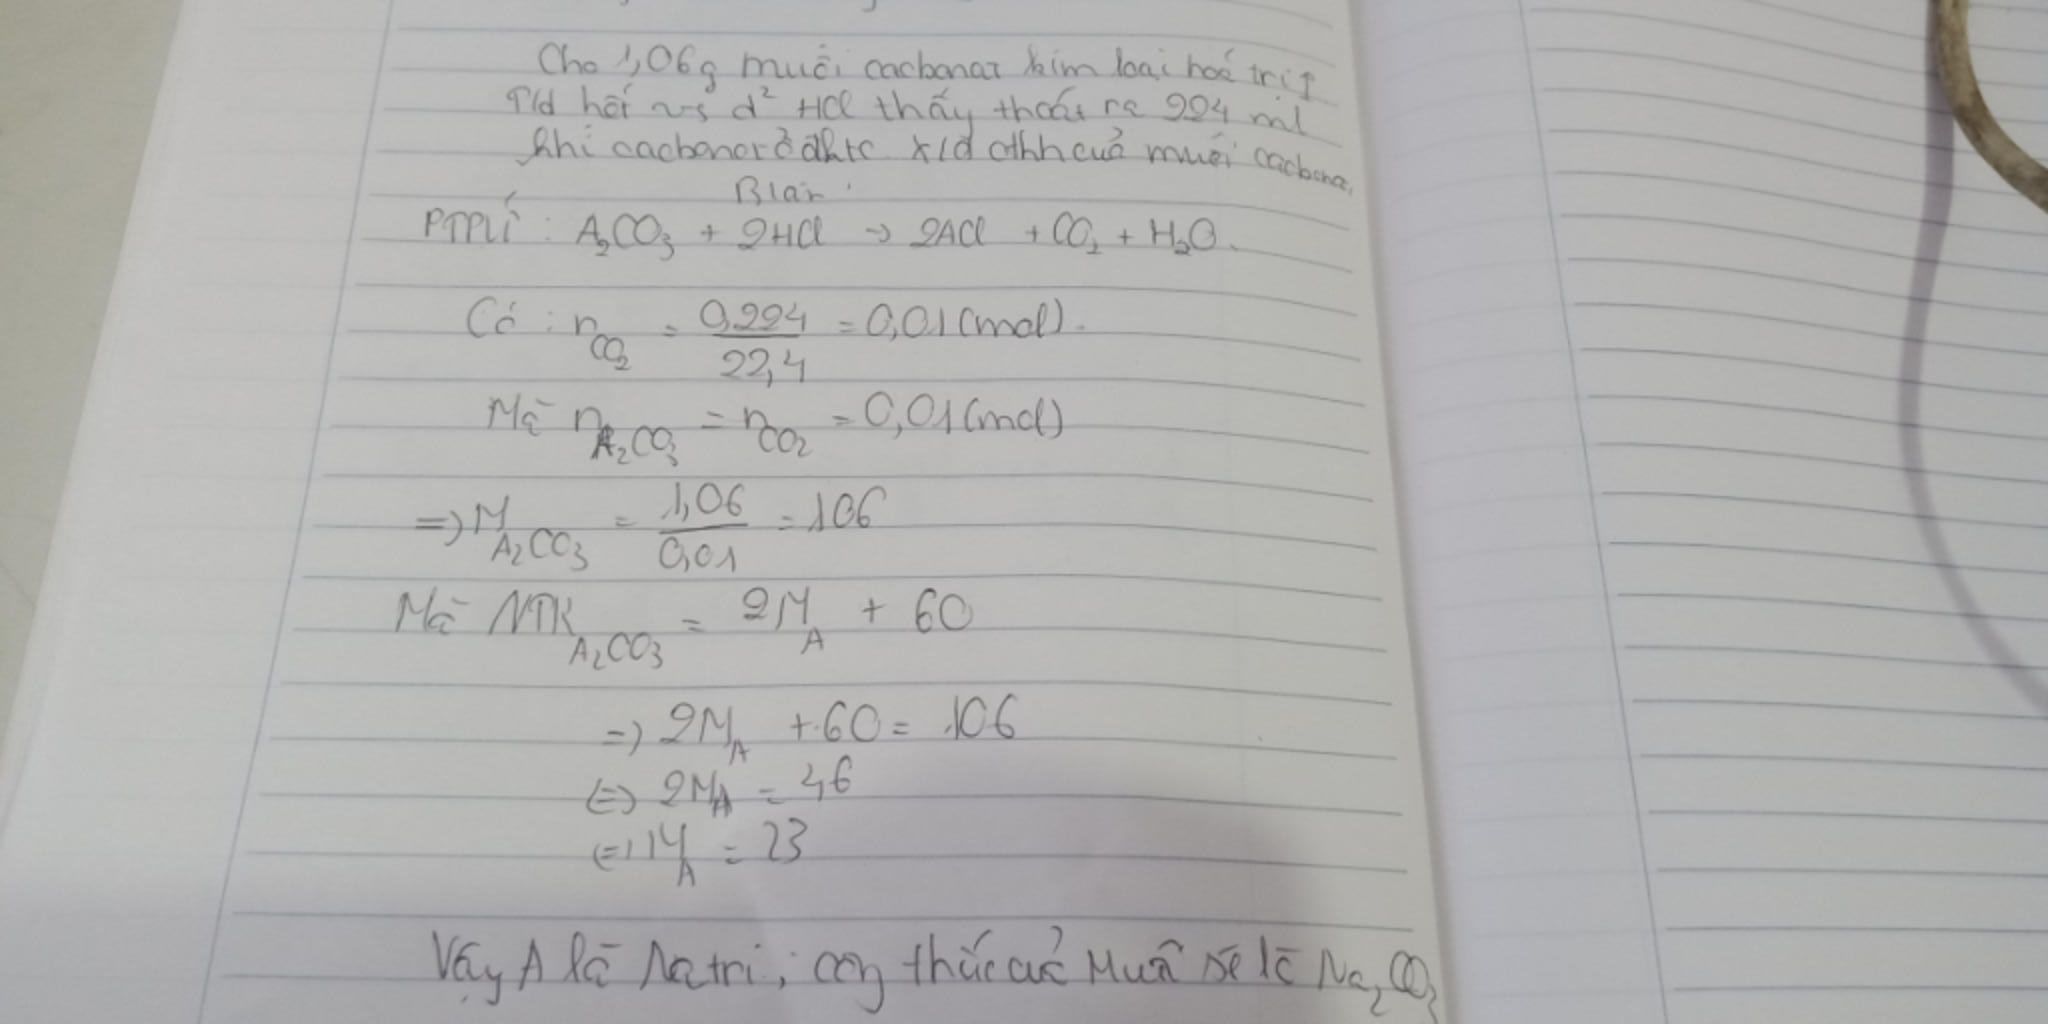 Cho 1,06g muối cacbonat kim loại hoá trị I
T/d hết vs d² HCl thấy thoát ra 224 ml
khí cacbonat ở đktc X/đ cthh của muối cacbonat.
Blàm:
PTPƯ: A₂CO₃ + 2HCl → 2ACl + CO₂ + H₂O.
Có: n CO₂ = 0,224 / 22,4 = 0,01 (mol).
Mà n A₂CO₃ = n CO₂ = 0,01 (mol)
=> M A₂CO₃ = 1,06 / 0,01 = 106
Mà NTK A₂CO₃ = 2M A + 60
=> 2M A + 60 = 106
<=> 2M A = 46
<=> M A = 23
Vậy A là Natri, công thức của Muối sẽ là Na₂CO₃